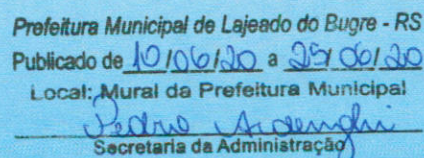 Prefeitura Municipal de Lajeado do Bugre - RS
Publicado de 10/06/20 a 25/06/20
Local: Mural da Prefeitura Municipal
Pedro
Secretaria da Administração